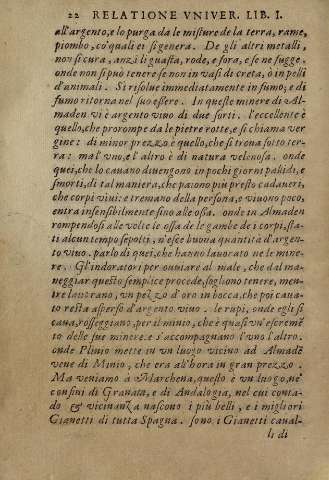 22 RELATIONE VNIVER. LIB. I.
all'argento, e lo purga da le misture de la terra, rame,
piombo, co' quali ei si genera. De gli altri metalli,
non si cura, anzi li guasta, rode, e fora, e se ne fugge.
onde non si può tenere se non in vasi di creta, ò in pelli
d'animali. Si risolue immediatamente in fumo; e di
fumo ritorna nel suo essere. In queste minere di Al-
maden vi è argento viuo di due sorti. l'eccellente è
quello, che prorompe da le pietre rotte, e si chiama ver
gine: di minor prezzo è quello, che si troua sotto ter-
ra: mà l'vno, e l'altro è di natura velenosa. onde
quei, che lo cauano diuengono in pochi giorni pallidi, e
smorti, di tal maniera, che paiono più presto cadaueri,
che corpi viui: e tremano della persona, e viuono poco,
entra insensibilmente sino alle ossa. onde in Almaden
rompendosi alle volte le ossa de le gambe de i corpi, sta-
ti alcun tempo sepolti, n'esce buona quantità d'argen-
to viuo. parlo di quei, che hanno lauorato ne le mine-
re. Gl'indoratori per ouuiare al male, che dal ma-
neggiar questo semplice procede, sogliono tenere, men-
tre lauorano, un pezzo d'oro in bocca, che poi caua-
to resta asperso d'argento viuo. le rupi, onde egli si
caua, rosseggiano, per il minio, che è quasi vn'escremẽ
to delle sue minere. e s'accompagnano l'vno l'altro.
onde Plinio mette in vn luogo vicino ad Almadẽ
vene di Minio, che era all'hora in gran prezzo.
Ma veniamo à Marchena, questo è vn luogo, ne'
confini di Granata, e di Andalogia, nel cui conta-
do & vicinanza nascono i più belli, e i migliori
Gianetti di tutta Spagna. sono i Gianetti caual-
li di